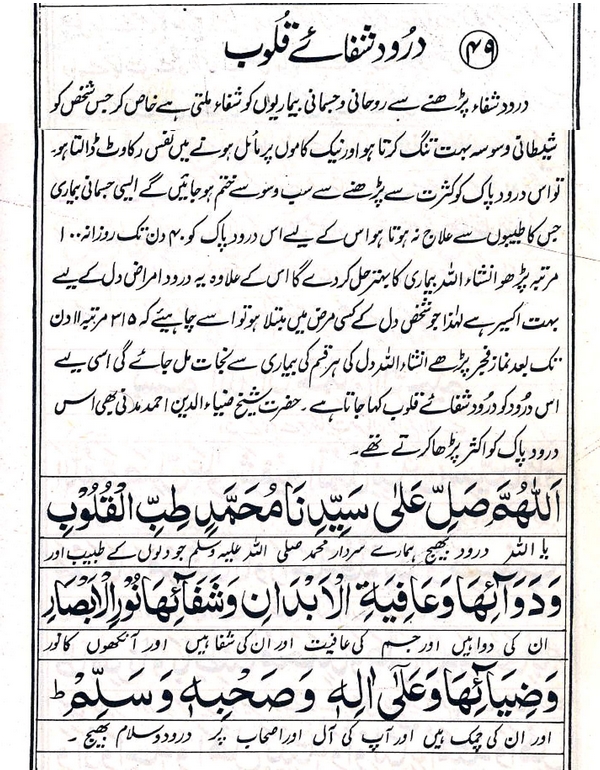 ۴۹ درُود شفائے قُلُوب
درود شفاء پڑھنے سے روحانی و جسمانی بیماریوں کو شفاء ملتی ہے خاص کر جس شخص کو
شیطانی وسوسہ بہت تنگ کرتا ہو اور نیک کاموں پر مائل ہونے میں نفس رکاوٹ ڈالتا ہو۔
تو اس درود پاک کو کثرت سے پڑھنے سے سب وسوسے ختم ہو جائیں گے ایسی جسمانی بیماری
جس کا طبیبوں سے علاج نہ ہوتا ہو اس کے لیے اس درود پاک کو ۴۰ دن تک روزانہ ۱۰۰
مرتبہ پڑھو انشاء اللہ بیماری کا بہتر حل کر دے گا اس کے علاوہ یہ درود امراض دل کے لیے
بہت اکسیر ہے لہٰذا جو شخص دل کے کسی مرض میں مبتلا ہو تو اسے چاہیئے کہ ۳۱۵ مرتبہ ۱۱ دن
تک بعد نماز فجر پڑھے انشاء اللہ دل کی ہر قسم کی بیماری سے نجات مل جائے گی اسی لیے
اس درُود کو درُود شفائے قلوب کہا جاتا ہے۔ حضرت شیخ ضیاء الدین احمد مدنی بھی اس
درود پاک کو اکثر پڑھا کرتے تھے۔
اَللّٰهُمَّ صَلِّ عَلٰى سَيِّدِنَا مُحَمَّدٍ طِبِّ الْقُلُوْبِ
یا اللہ درود بھیج ہمارے سردار محمد صلی اللہ علیہ وسلم جو دلوں کے طبیب اور
وَدَوَآئِهَا وَعَافِيَةِ الْاَبْدَانِ وَشَفَآئِهَا نُوْرِ الْاَبْصَارِ
ان کی دوا ہیں اور جسم کی عافیت اور ان کی شفا ہیں اور آنکھوں کا نور
وَضِيَآئِهَا وَعَلٰٓى اٰلِهٖ وَصَحْبِهٖ وَسَلِّمْ ط
اور ان کی چمک ہیں اور آپ کی آل اور اصحاب پر درود و سلام بھیج۔